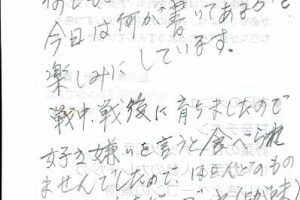 今日は何が書いてあるかと、
楽しみにしています。
戦中、戦後に育ちましたので
好き嫌いを言うと食べられ
ませんでしたので、ほとんどのもの